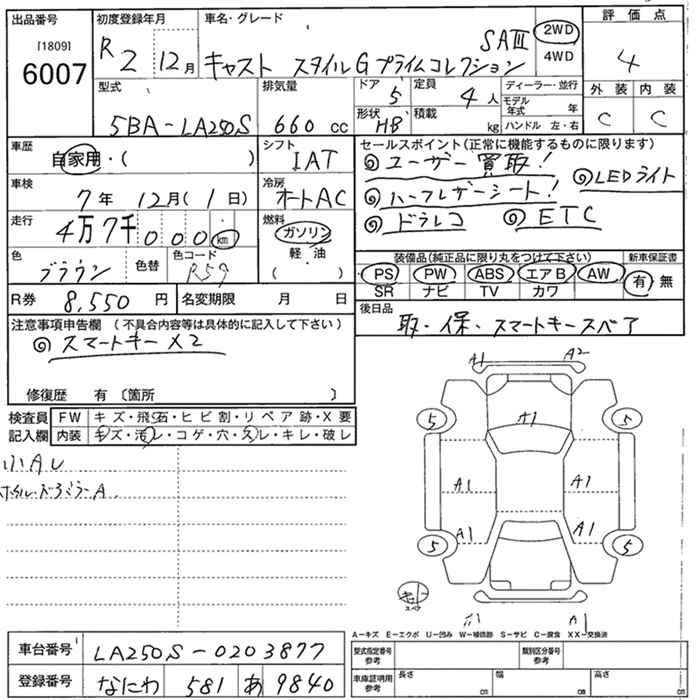 出品番号 初度登録年月 車名・グレード 評価点
[1809] 6007
R2 12月 キャスト スタイルG プライムコレクション SAⅢ
2WD
4WD
4
外装 内装
C C
型式 排気量 ドア 定員 ディーラー・並行
5BA-LA250S 660 cc 5 4人
モデル年式 年
形状 積載
HB kg ハンドル 左・右
車歴 シフト セールスポイント(正常に機能するものに限ります)
自家用・( ) IAT
◎ユーザー買取!
◎LEDライト
車検 冷房
7年 12月(1日) オートAC
◎ハーフレザーシート!
走行 燃料
4万7千000km ガソリン
◎ドラレコ ◎ETC
軽油
( )
色 色替 色コード
ブラウン R59
装備品(純正品に限り丸をつけて下さい) 新車保証書
PS PW ABS エアB AW 有・無
SR ナビ TV カワ
R券 8,550円 名変期限 月 日
後日品
取・保・スマートキースペア
注意事項申告欄 (不具合内容等は具体的に記入して下さい)
◎スマートキーX2
修復歴 有 〔箇所 〕
検査員 FW キズ・飛石・ヒビ割・リペア跡・X要
記入欄 内装 キズ・汚レ・コゲ・穴・スレ・キレ・破レ
小AU
A1 A2
5 A1 5
A1 A1
A1 A1
5 5
スペア
A1
A-キズ E-エクボ U-凹み W-補修跡 S-サビ C-腐食 XX-交換済
車台番号 LA250S-0203877
型式指定番号 参考 類別区分番号 参考
登録番号 なにわ 581 あ 9840
車庫証明用 参考 長さ cm 幅 cm 高さ cm